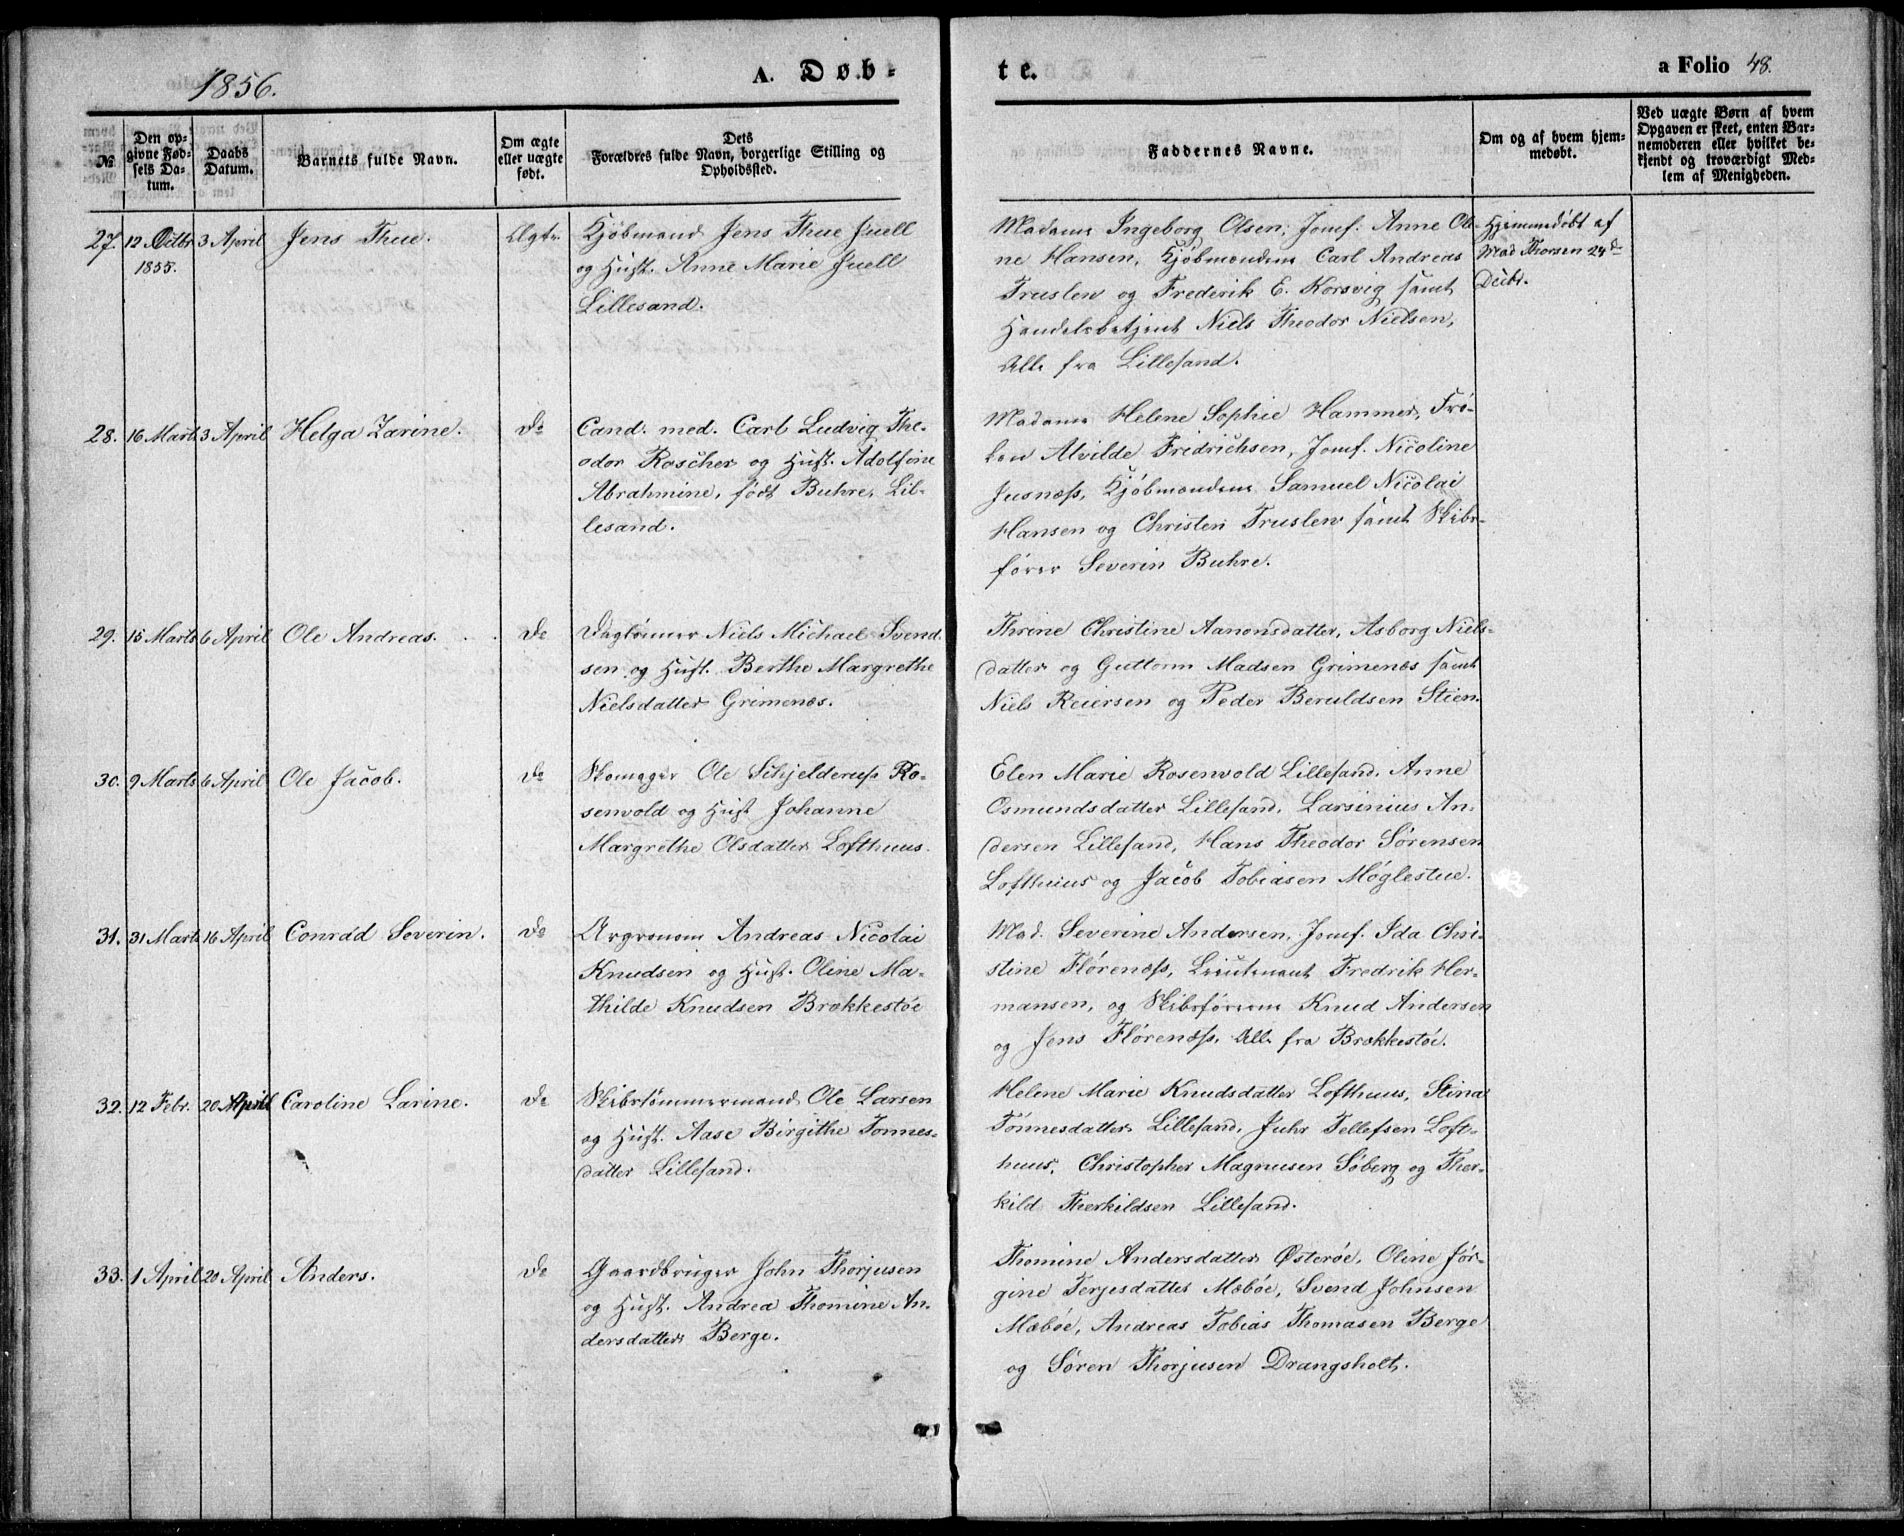 1856.
A. Døb-
te.
a Folio 48.
№
Den op-
givne Fød-
sels Da-
tum.
Daabs
Datum.
Barnets fulde Navn.
Om ægte
eller uægte
født.
Dets
Forældres fulde Navn, borgerlige Stilling og
Opholdssted.
Faddernes Navne.
Om og af hvem hjem-
medøbt.
Ved uægte Børn af hvem
Opgaven er skeet, enten Bar-
nemoderen eller hvilket be-
kjendt og troværdigt Med-
lem af Menigheden.
27. 12 Octbr 3 April Jens Thue. Ægte.
1855.
Kjøbmand Jens Thue Juell
og Hust. Anne Marie Juell
Lillesand.
Madame Ingeborg Olsen, Jomf. Anne Ole-
ne Hansen, Kjøbmændene Carl Andreas
Truslew og Frederik E. Korsvig samt
Handelsbetjent Niels Theodor Nielsen,
Alle fra Lillesand.
Hjemmedøbt af
Mad Thorsen 24d
Decbr.
28. 16 Marts 3 April Helga Zarine. Do
Cand. med. Carl Ludvig The-
odor Roscher og Hust. Adolfine
Abrahmine, født Buhre, Lil-
lesand.
Madame Helene Sophie Hammer, Frø-
ken Alvilde Fridrichsen, Jomf. Nicoline
Jusnæss, Kjøbmændene Samuel Nicolai
Hansen og Christen Truslew samt Skibs-
fører Severin Buhre.
29. 15 Marts 6 April Ole Andreas. Do
Dagløner Niels Michael Svend-
sen og Hust. Berthe Margrethe
Nielsdatter Grimenæs.
Thrine Christine Aanonsdatter, Asborg Niels-
datter og Guttorm Madsen Grimenæs samt
Niels Reiersen og Peder Beruldsen Stien.
30. 9 Marts 6 April Ole Jacob. Do
Skomager Ole Schjelderup Ro-
senvold og Hust Johanne
Margrethe Olsdatter Lofthuus.
Elen Marie Rosenvold Lillesand, Anne
Osmundsdatter Lillesand, Larsinius An-
dersen Lillesand, Hans Theodor Sørensen
Lofthuus og Jacob Tobiasen Møglestue.
31. 31 Marts 16 April Conrad Severin. Do
Argronom Andreas Nicolai
Knudsen og Hust. Oline Ma-
thilde Knudsen Brækkestøe
Mad. Severine Andersen, Jomf. Ida Chri-
stine Flørenæss, Lieutenant Fredrik Her-
mansen, og Skibsførerne Knud Andersen
og Jens Flørenæss, Alle fra Brækkestøe.
32. 12 Febr. 20 April Caroline Larine. Do
Skibstømmermand Ole Larsen
og Hust. Aase Birgithe Tønnes-
datter Lillesand.
Helene Marie Knudsdatter Lofthuus, Stina
Tønnesdatter Lillesand, Juhr Tellefsen Loft-
huus, Christopher Magnusen Søberg og Ther-
kild Therkildsen Lillesand.
33. 1 April 20 April Anders. Do
Gaardbruger John Thorjusen
og Hust. Andrea Thomine An-
dersdatter Berge.
Thomine Andersdatter Østerøe, Oline Jør-
gine Terjesdatter Mæbøe, Svend Johnsen
Mæbøe, Andreas Tobias Thomasen Berge
og Søren Thorjusen Drangsholt.